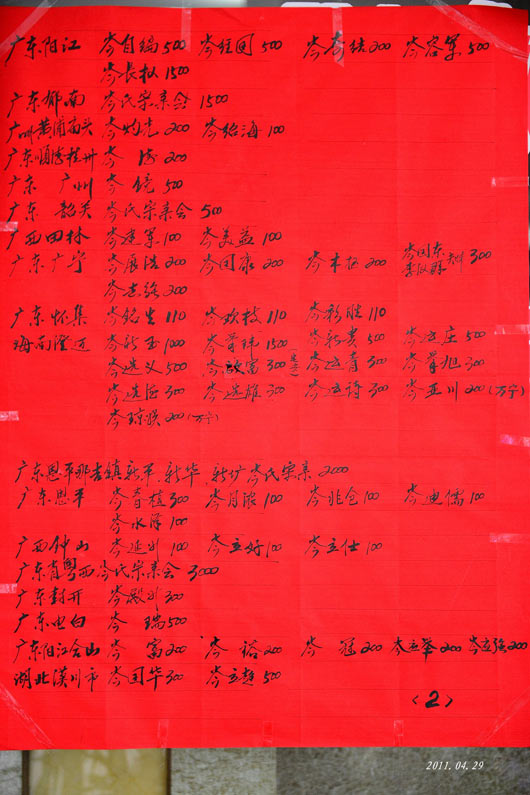 广东阳江 岑自端500 岑经国500 岑奇结200 岑容军500
岑长权1500
广东郁南 岑氏宗亲会1500
广州黄浦南头 岑灼光200 岑绍海100
广东順德桂州 岑 海200
广东 广州 岑 镜500
广东 韶关 岑氏宗亲会500
广西田林 岑建军100 岑美益100
广东广宁 岑展浩200 岑国康200 岑木 200 岑国东 300
岑志強200
广东怀集 岑铭生110 岑欢枝110 岑彩胜110
海南澄迈 岑 1000 岑 1500 岑 500 岑 庄500
岑选义500 岑 富300 岑 青300 岑 旭300
岑选 300 岑选雄300 岑 诗300 岑亚川200(万宁)
岑琼 200(万宁)
广东恩平那吉镇新平、新华、新 岑氏宗亲2000
广东恩平 岑春植300 岑月 100 岑兆仓100 岑迪儒100
岑水泽100
广西钟山 岑延 100 岑立好100 岑立仕100
广东省粤西岑氏宗亲会3000
广东封开 岑 300
广东电白 岑 瑞500
广东阳江合山 岑 富200 岑 裕200 岑 冠200 岑立举200 岑立强200
湖北漢川市 岑国华300 岑立超500
<2>
2011.04.29